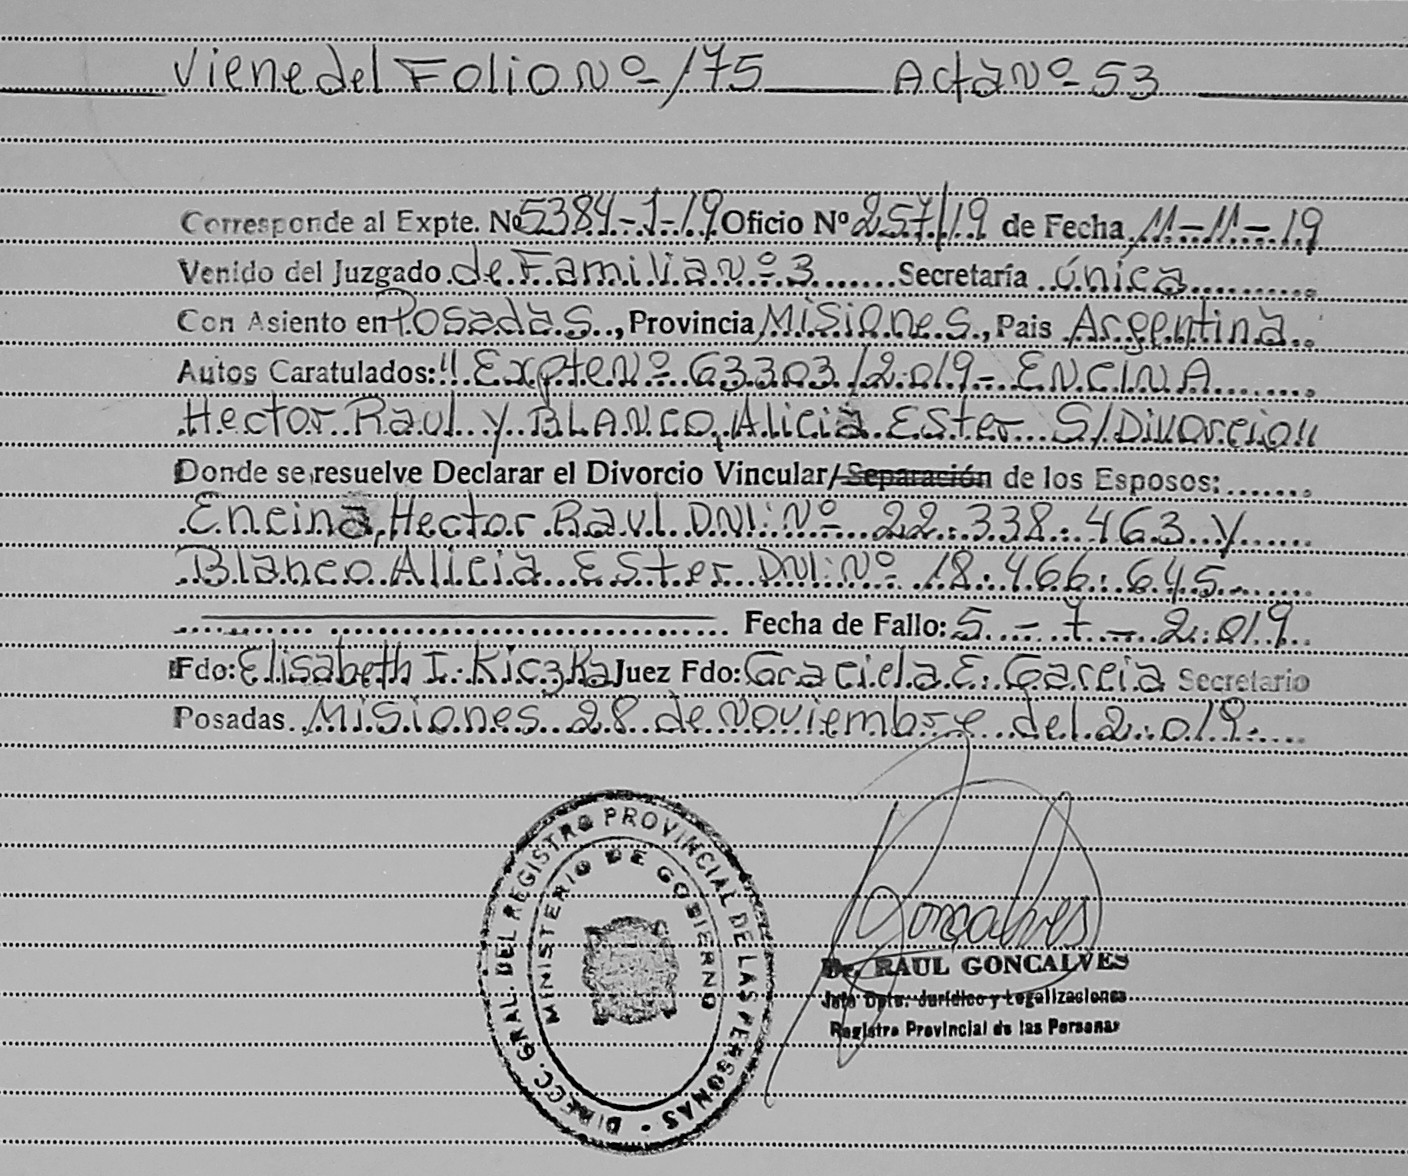 Viene del Folio Nº 175 Acta Nº 53
Corresponde al Expte. Nº 5384-1-19 Oficio Nº 257/19 de Fecha 11-11-19
Venido del Juzgado de Familia Nº 3 Secretaría única
Con Asiento en Posadas, Provincia Misiones, Pais Argentina
Autos Caratulados: "Expte Nº 63303/2019- ENCINA
Hector Raul y BLANCO, Alicia Ester S/Divorcio"
Donde se resuelve Declarar el Divorcio Vincular/Separación de los Esposos:
Encina, Hector Raul DNI: Nº 22.338.463 y
Blanco Alicia Ester DNI: Nº 18.466.645
Fecha de Fallo: 5-7-2019
Fdo: Elisabeth I. Kiczka Juez Fdo: Graciela E. Garcia Secretario
Posadas Misiones 28 de Noviembre del 2019
DIRECC. GRAL. DEL REGISTRO PROVINCIAL DE LAS PERSONAS
MINISTERIO DE GOBIERNO
Gonçalves
Dr. RAUL GONCALVES
Jefe Dpto. Jurídico y Legalizaciones
Registro Provincial de las Personas